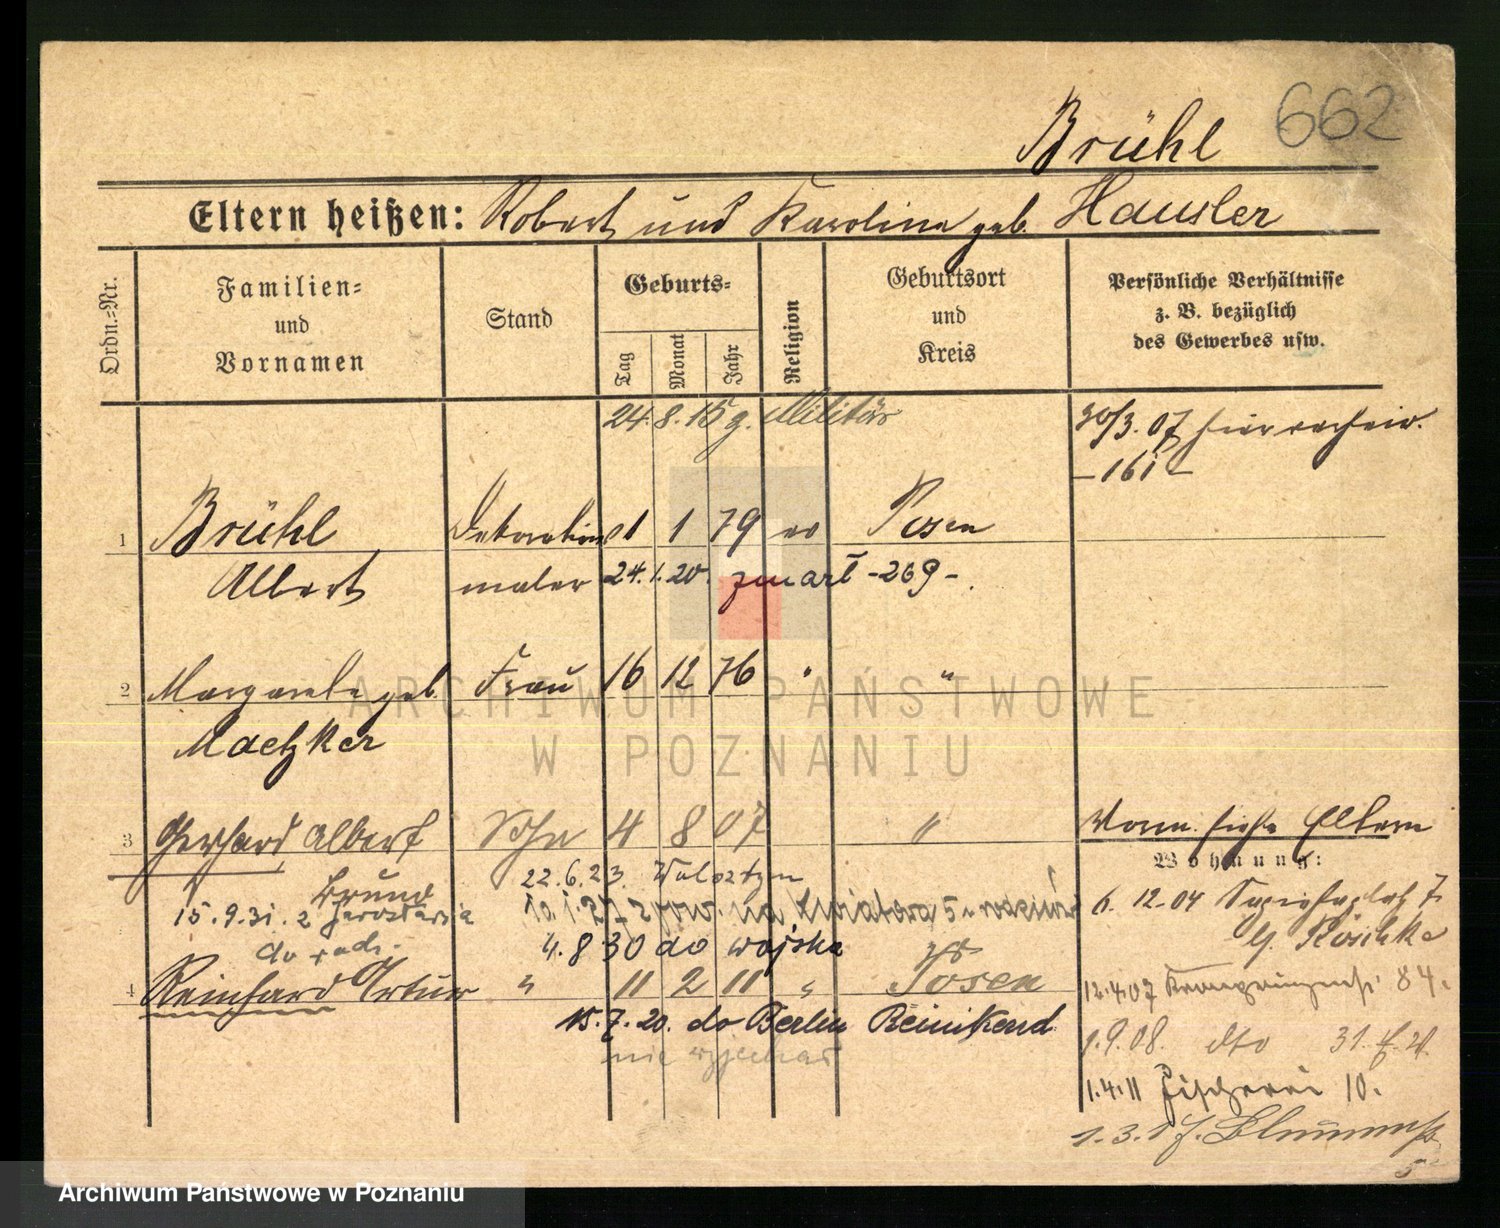 662
Brühl
Eltern heißen: Robert und Karolina geb. Hausler
Ordn.-Nr.
Familien-
und
Vornamen
Stand
Geburts-
Tag
Monat
Jahr
Religion
Geburtsort
und
Kreis
Persönliche Verhältnisse
z. B. bezüglich
des Gewerbes usw.
24.8.15 g. Militär
30/3.07 hier
-161-
1 Brühl Dekorations 1 1 79 ev Posen
Albert maler 24.1.20. zmarł -269-
2 Margarete geb. Frau 16 12 76 " "
Maetzker
3 Gerhard Albert Sohn 4 8 07 "
Vorm. siehe Eltern
Wohnung:
22.6.23.
Bruno
15.9.31. 2
na Kwiatowa 5
6.12.04
4.8 30 do wojska
do rodz.
12.4.07 84.
4 Reinhard Artur " 11 2 11 " Posen
15.7.20. do Berlin
1.9.08. dto 31.
nie wyjechał
1.4.11 Fischerei 10.
1.3.17.
5
ARCHIWUM PAŃSTWOWE
W POZNANIU
Archiwum Państwowe w Poznaniu